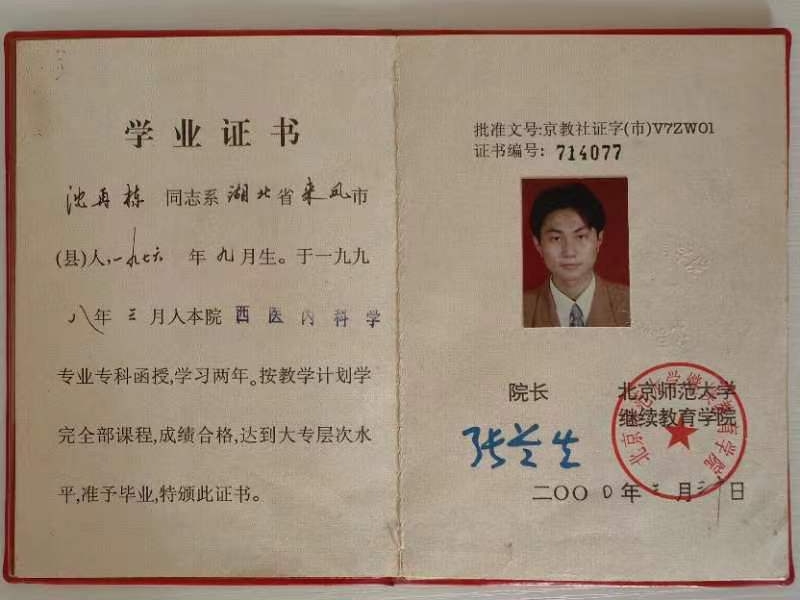 学业证书
沈再栋 同志系湖北省来凤市
(县)人,一九七六年九月生。于一九九
八年三月入本院西医内科学
专业专科函授,学习两年。按教学计划学
完全部课程,成绩合格,达到大专层次水
平,准予毕业,特颁此证书。
批准文号:京教社证字(市)V7ZW01
证书编号: 714077
院长 北京师范大学
继续教育学院
张兰生
二〇〇〇年三月 日